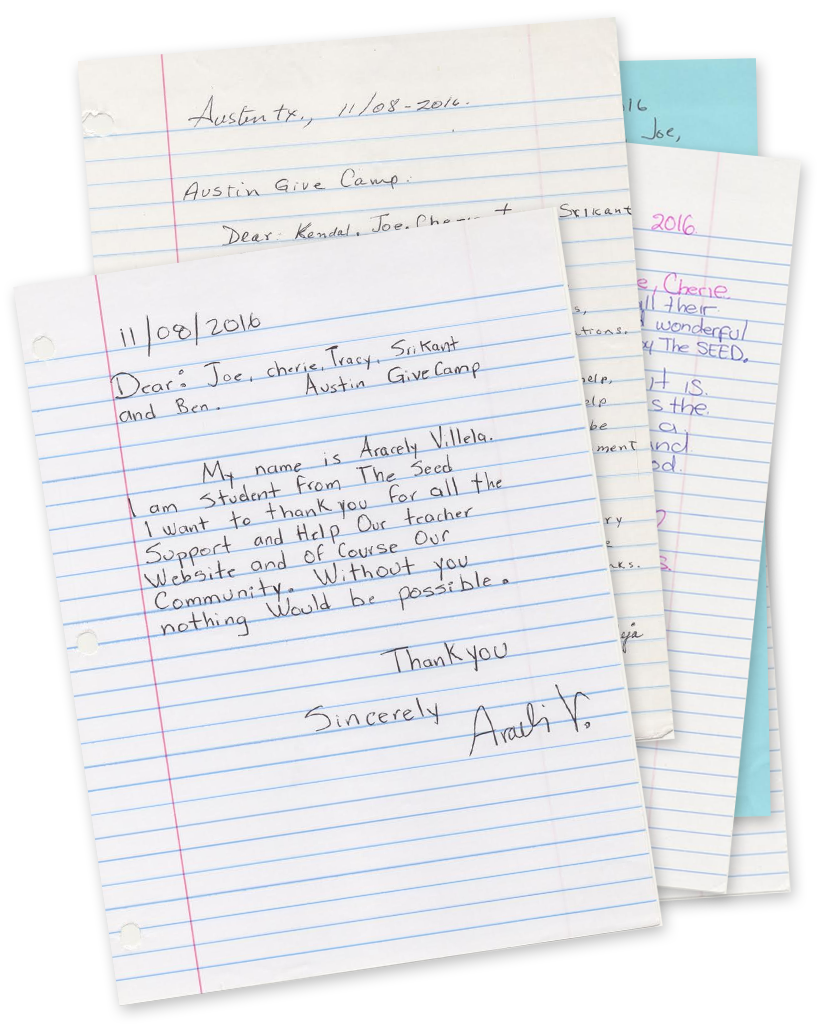 Austin tx., 11/08-2016.
Austin Give Camp.
Dear: Kendal, Joe. Cherie
Srikant
s,
tions.
help,
elp
be
ment
ry
e
ks.
16
Joe,
2016
e, Cherie
ll their
wonderful
The SEED.
it is
s the
a
and
od.
11/08/2016
Dear: Joe, cherie, Tracy, Srikant
and Ben. Austin GiveCamp
My name is Aracely Villela.
I am Student from The Seed
I want to thank you for all the
Support and Help Our teacher
Website and of Course Our
Community. Without you
nothing Would be possible.
Thank you
Sincerely Araeli V.